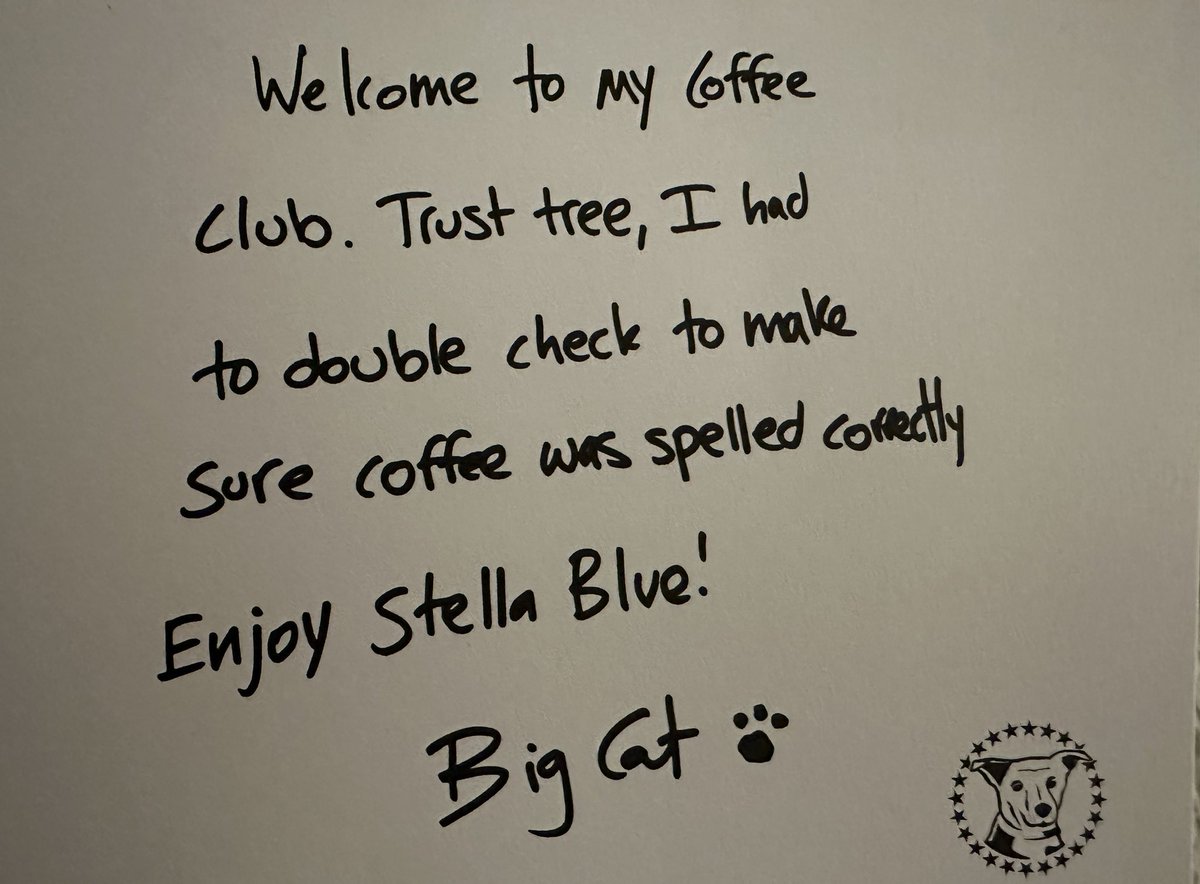 Welcome to my Coffee
Club. Trust tree, I had
to double check to make
sure coffee was spelled correctly
Enjoy Stella Blue!
Big Cat